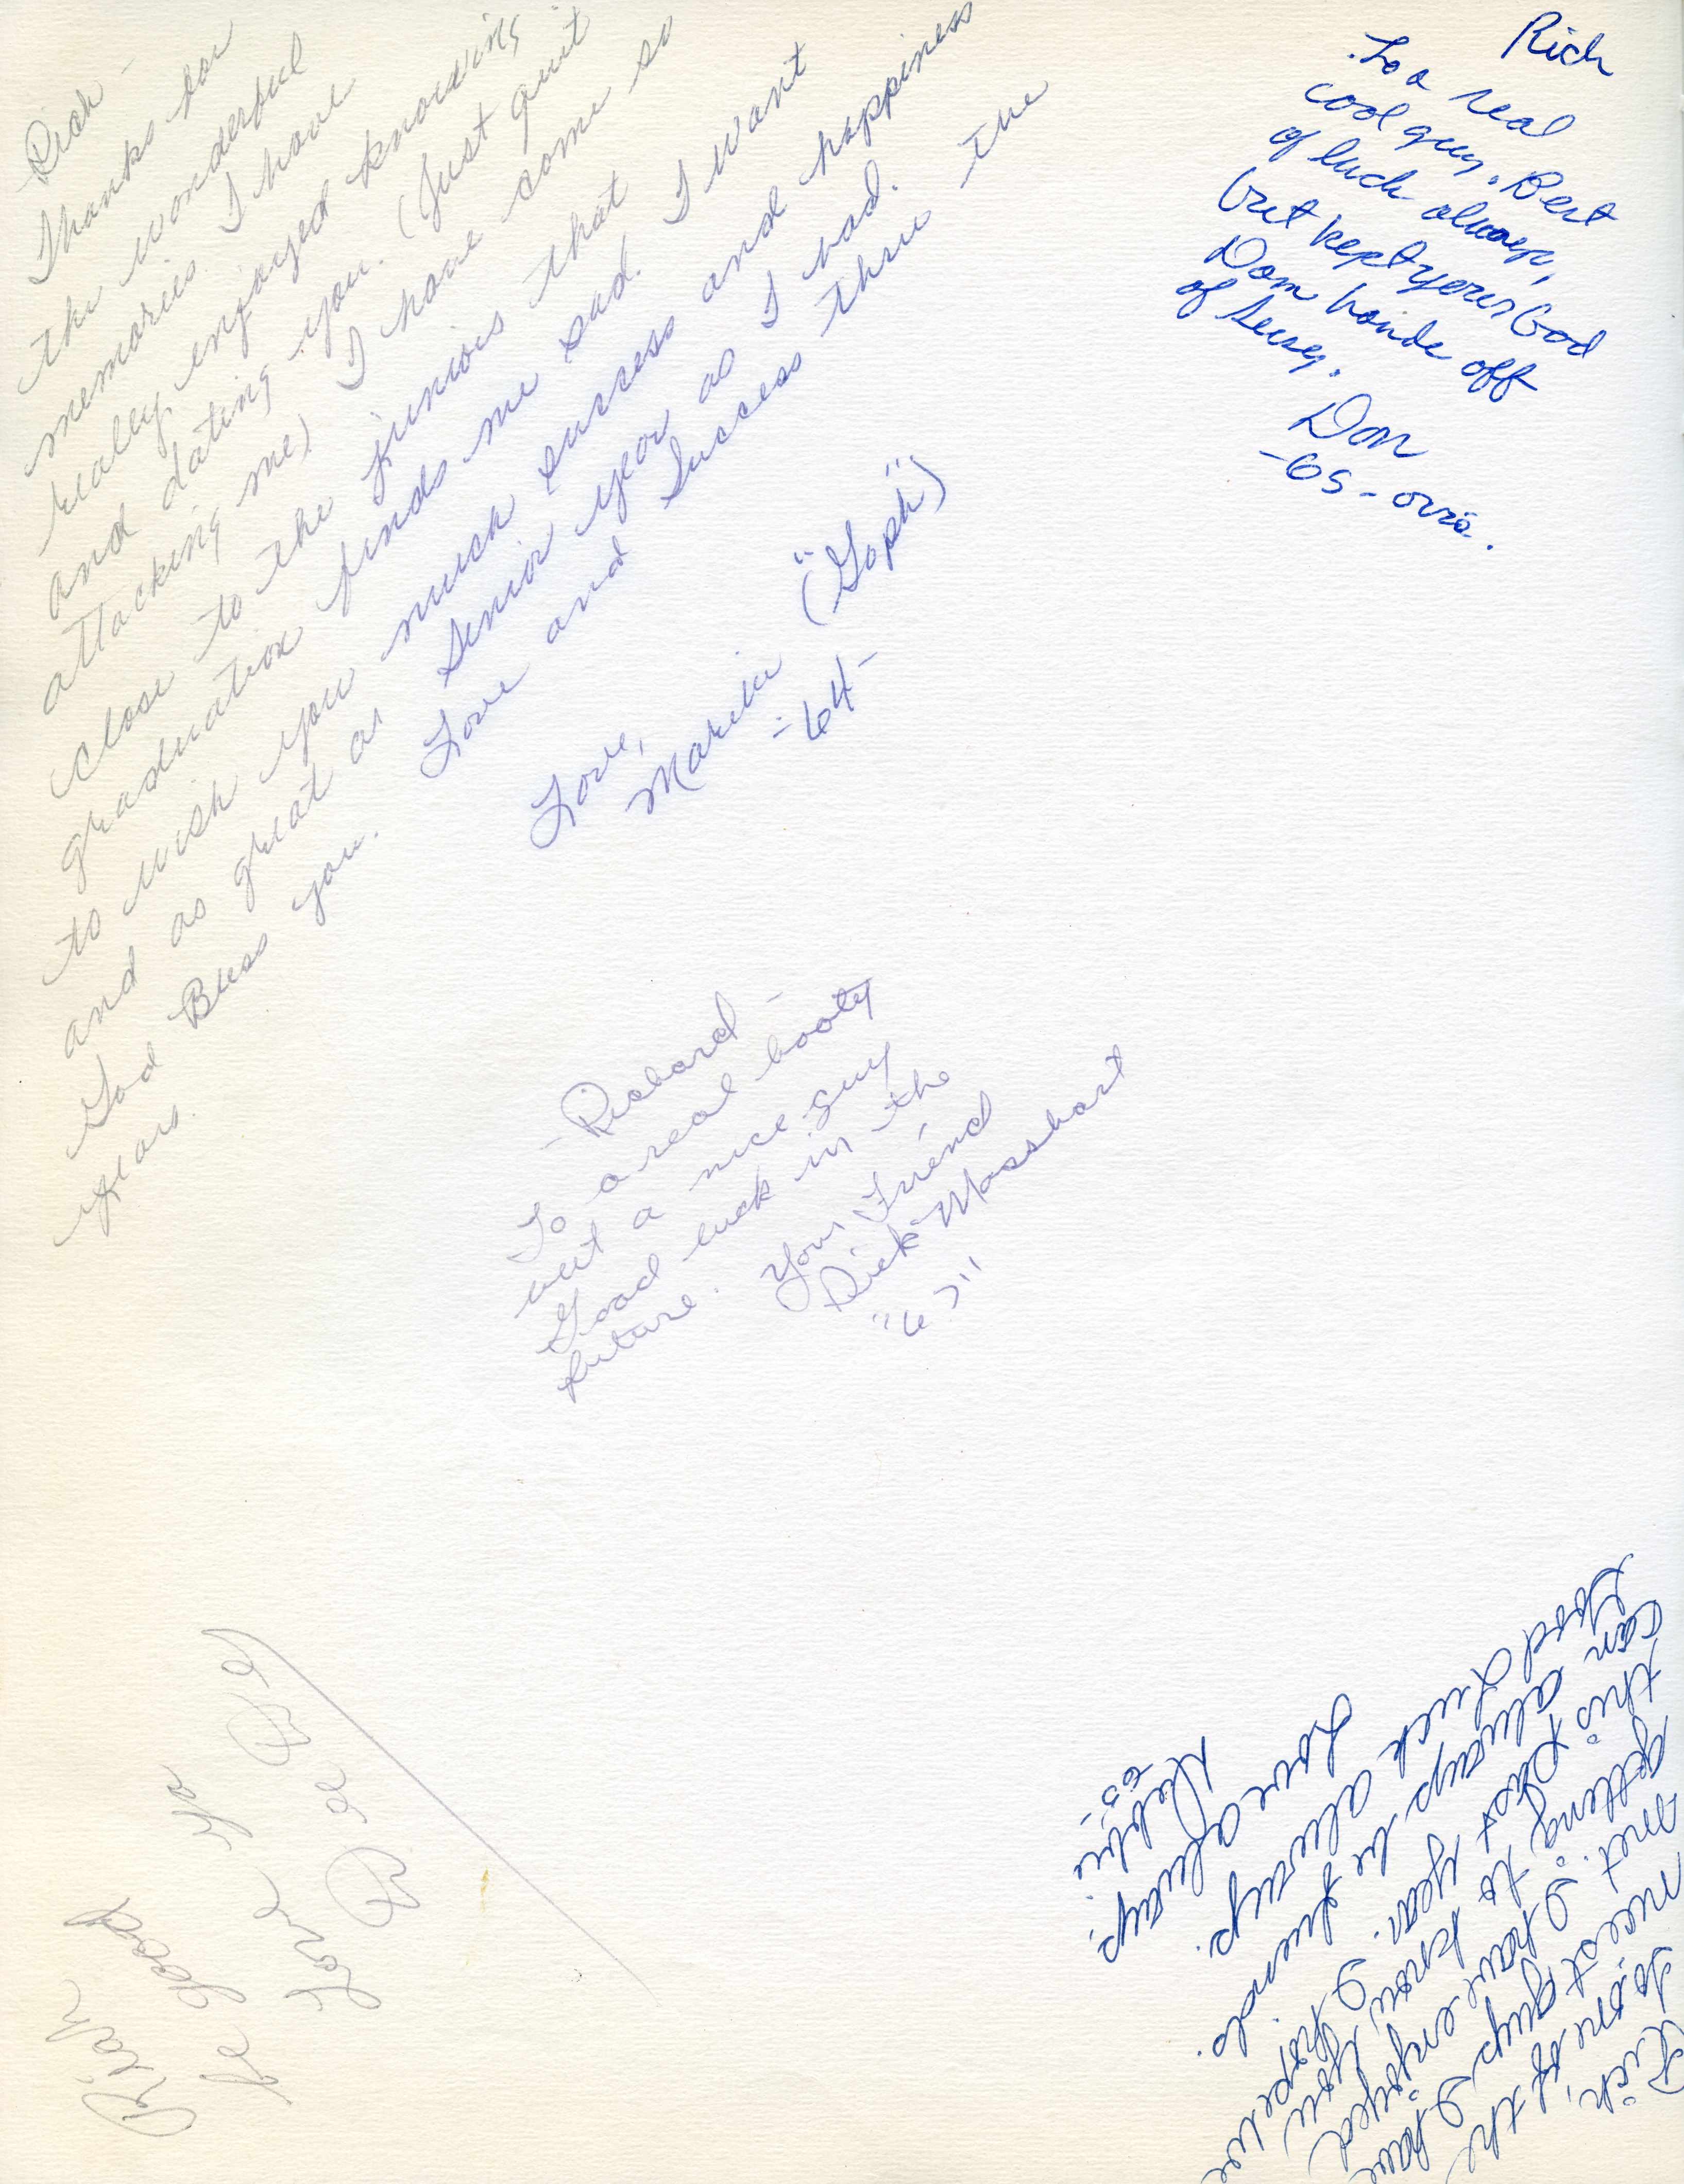 Rich -
Thanks for
the wonderful
memories I have
really enjoyed knowing
and dating you. (Just quit
attacking me) I have come so
close to the juniors that
graduation finds me sad. I want
to wish you much success and happiness
and as great a Senior year as I had.
God Bless you. Love and Success thru the
years.
Love,
("Goph")
-64-
Rich
To a real
cool guy. Best
of luck always,
but kept your God
Dam hands off
of
Don
-65-ours.
- Richard -
To a real booty
but a nice guy
Good luck in the
future. Your Friend
Dick Masshart
"67"
Rich
Be Good
Love Ya
Dee Dee
Rich,
To one of the
nicest guys I have
met. I have enjoyed
getting to know you
this past year. I hope we
can always be friends.
Good Luck always.
Love always,
Debbie
"65"